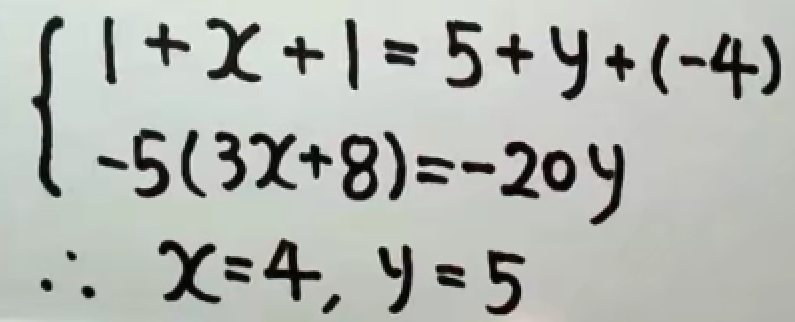 1 + x + 1 = 5 + y + (-4)
-5(3x+8)=-20y
∴ x=4, y=5